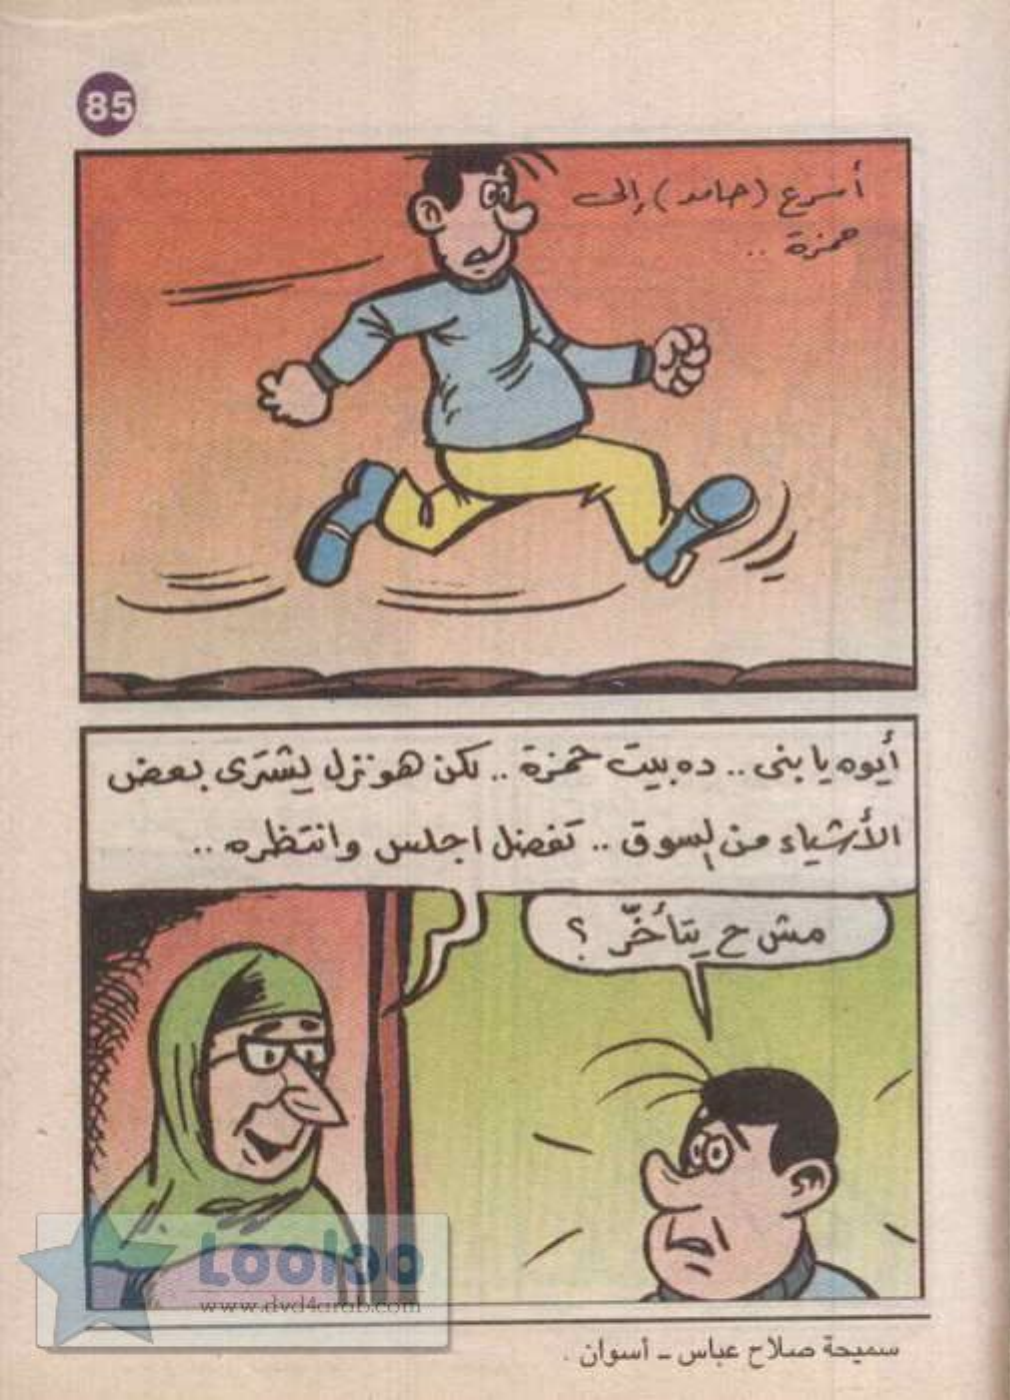 85
أسرع (حامد) إلى
حمزة ..
أيوه يا بنى .. ده بيت حمزة .. لكن هو نزل يشترى بعض
الأشياء من السوق .. تفضل اجلس وانتظره ..
مش ح يتأخَّر ؟
Looloo
www.dvd4arab.com
سميحة صلاح عباس - أسوان .